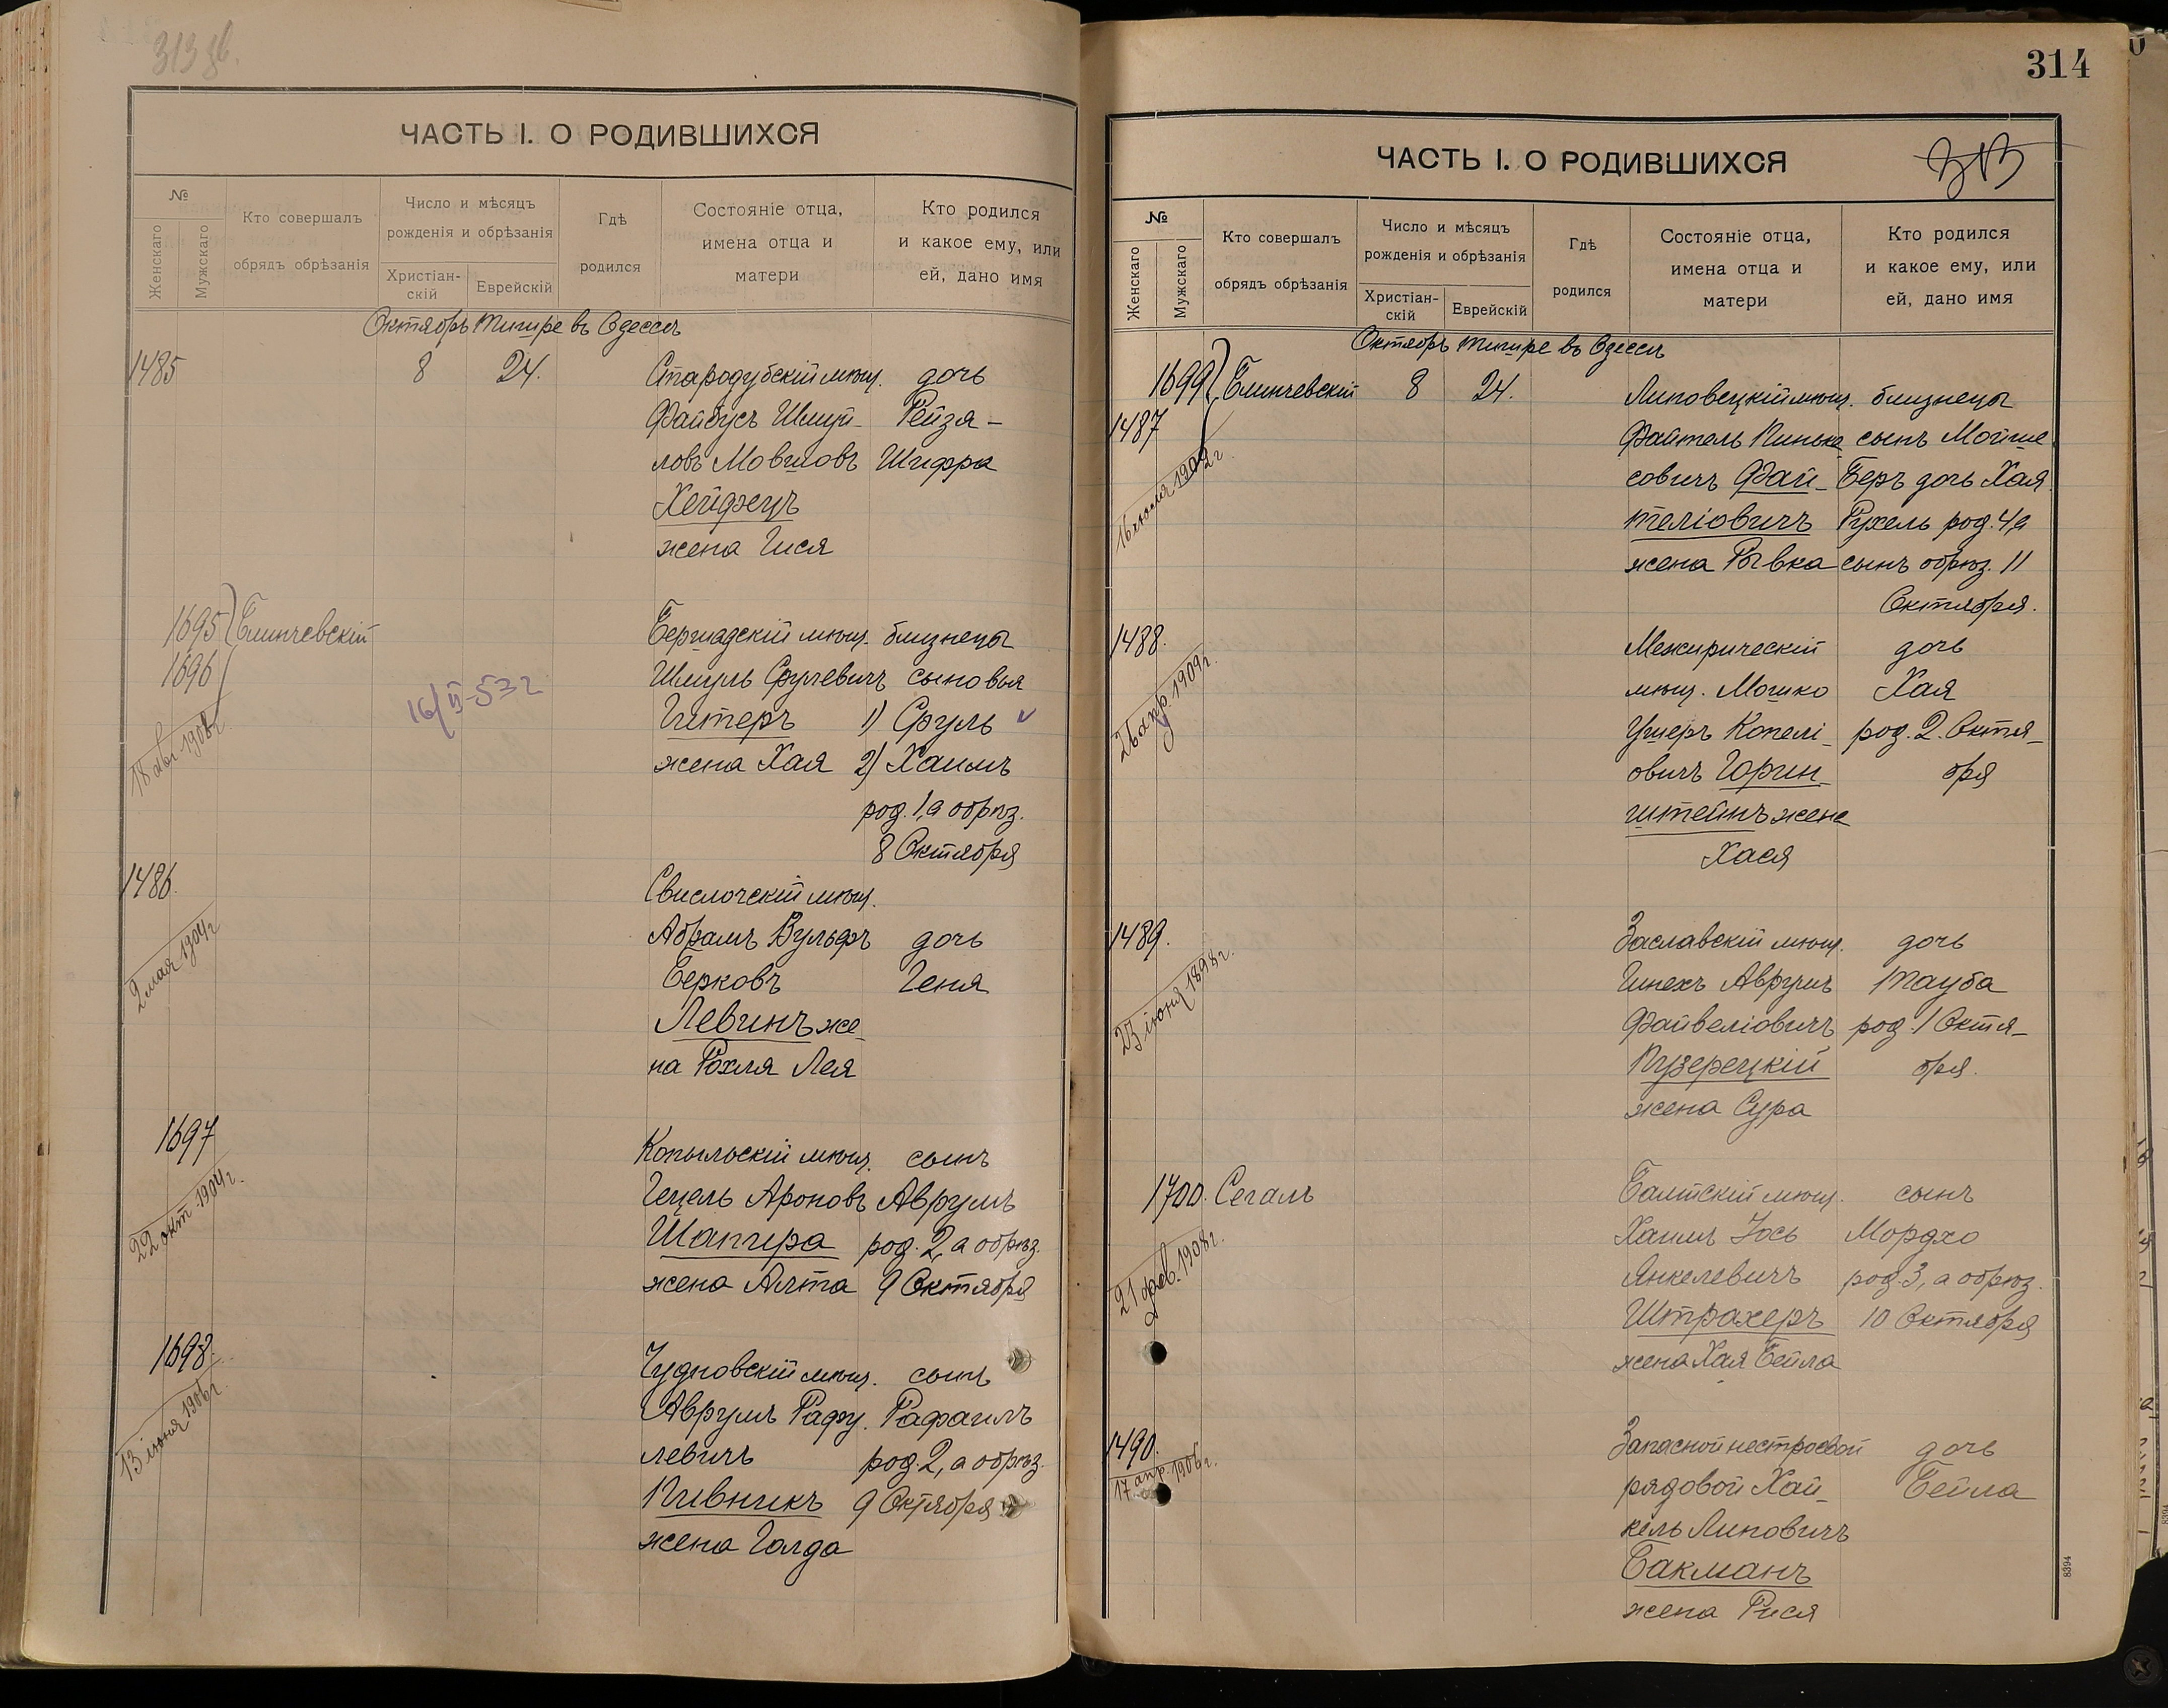 313 зв.
ЧАСТЬ I. О РОДИВШИХСЯ
№
Женскаго
Мужскаго
Кто совершалъ
обрядъ обрѣзанія
Число и мѣсяцъ
рожденія и обрѣзанія
Христіан-
скій
Еврейскій
Гдѣ
родился
Состояніе отца,
имена отца и
матери
Кто родился
и какое ему, или
ей, дано имя
Октябрь Тишре въ Одессѣ
1485 8 24. Стародубскій мѣщ. дочь
Файбусъ Шмуй- Рейза-
ловъ Мовшовъ Шифра
Хейфецъ
жена Гися
1695 Блинчевскій Бершадскій мѣщ. близнецы
1696 Шмуль Срулевичъ сыновья
16/II-53г Гитеръ 1) Сруль ✓
18 авг. 1908г. жена Хая 2) Хаимъ
род. 1, а обрѣз.
8 Октября
1486. Свислочскій мѣщ.
2 мая 1904г Абрамъ Вульфъ дочь
Берковъ Геня
Левинъ же-
на Рохля Лея
1697 Копыльскій мѣщ. сынъ
22 окт. 1904г. Гецель Ароновъ Аврумъ
Шапира род. 2, а обрѣз.
жена Алта 9 Октября
1698. Чудновскій мѣщ. сынъ
13 іюня 1906г. Аврумъ Рафу. Рафаилъ
левичъ род. 2, а обрѣз.
Пивникъ 9 Октября
жена Голда
314
ЧАСТЬ I. О РОДИВШИХСЯ
313
№
Женскаго
Мужскаго
Кто совершалъ
обрядъ обрѣзанія
Число и мѣсяцъ
рожденія и обрѣзанія
Христіан-
скій
Еврейскій
Гдѣ
родился
Состояніе отца,
имена отца и
матери
Кто родился
и какое ему, или
ей, дано имя
Октябрь Тишре въ Одессѣ
1699 Блинчевскій 8 24. Липовецкій мѣщ. близнецы
1487 Файтель Пинька сынъ Мойше
16 1909г. совичъ Фай- Беръ дочь Хая
теліовичъ Рухель род. 4, а
жена Рывка сынъ обрѣз. 11
Октября.
1488. Межирическій дочь
26 апр. 1909г. мѣщ. Мошко Хая
Ушеръ Копелі- род. 2. Октя-
овичъ Горин- бря
штейнъ жена
Хася
1489. Заславскій мѣщ. дочь
23 іюня 1898г. Пинехъ Аврумъ Тауба
Файвеліовичъ род. 1 Октя-
Пузерецкій бря.
жена Сура
1700. Сегалъ Балтскій мѣщ. сынъ
21 фев. 1908г. Хаимъ Іось Мордхо
Янкелевичъ род. 3, а обрѣз.
Штрахеръ 10 Октября
жена Хая Бейла
1490. Запасной нестроевой дочь
17 апр. 1906г. рядовой Хай- Бейла
кель Липовичъ
Бакманъ
жена Рися
8394